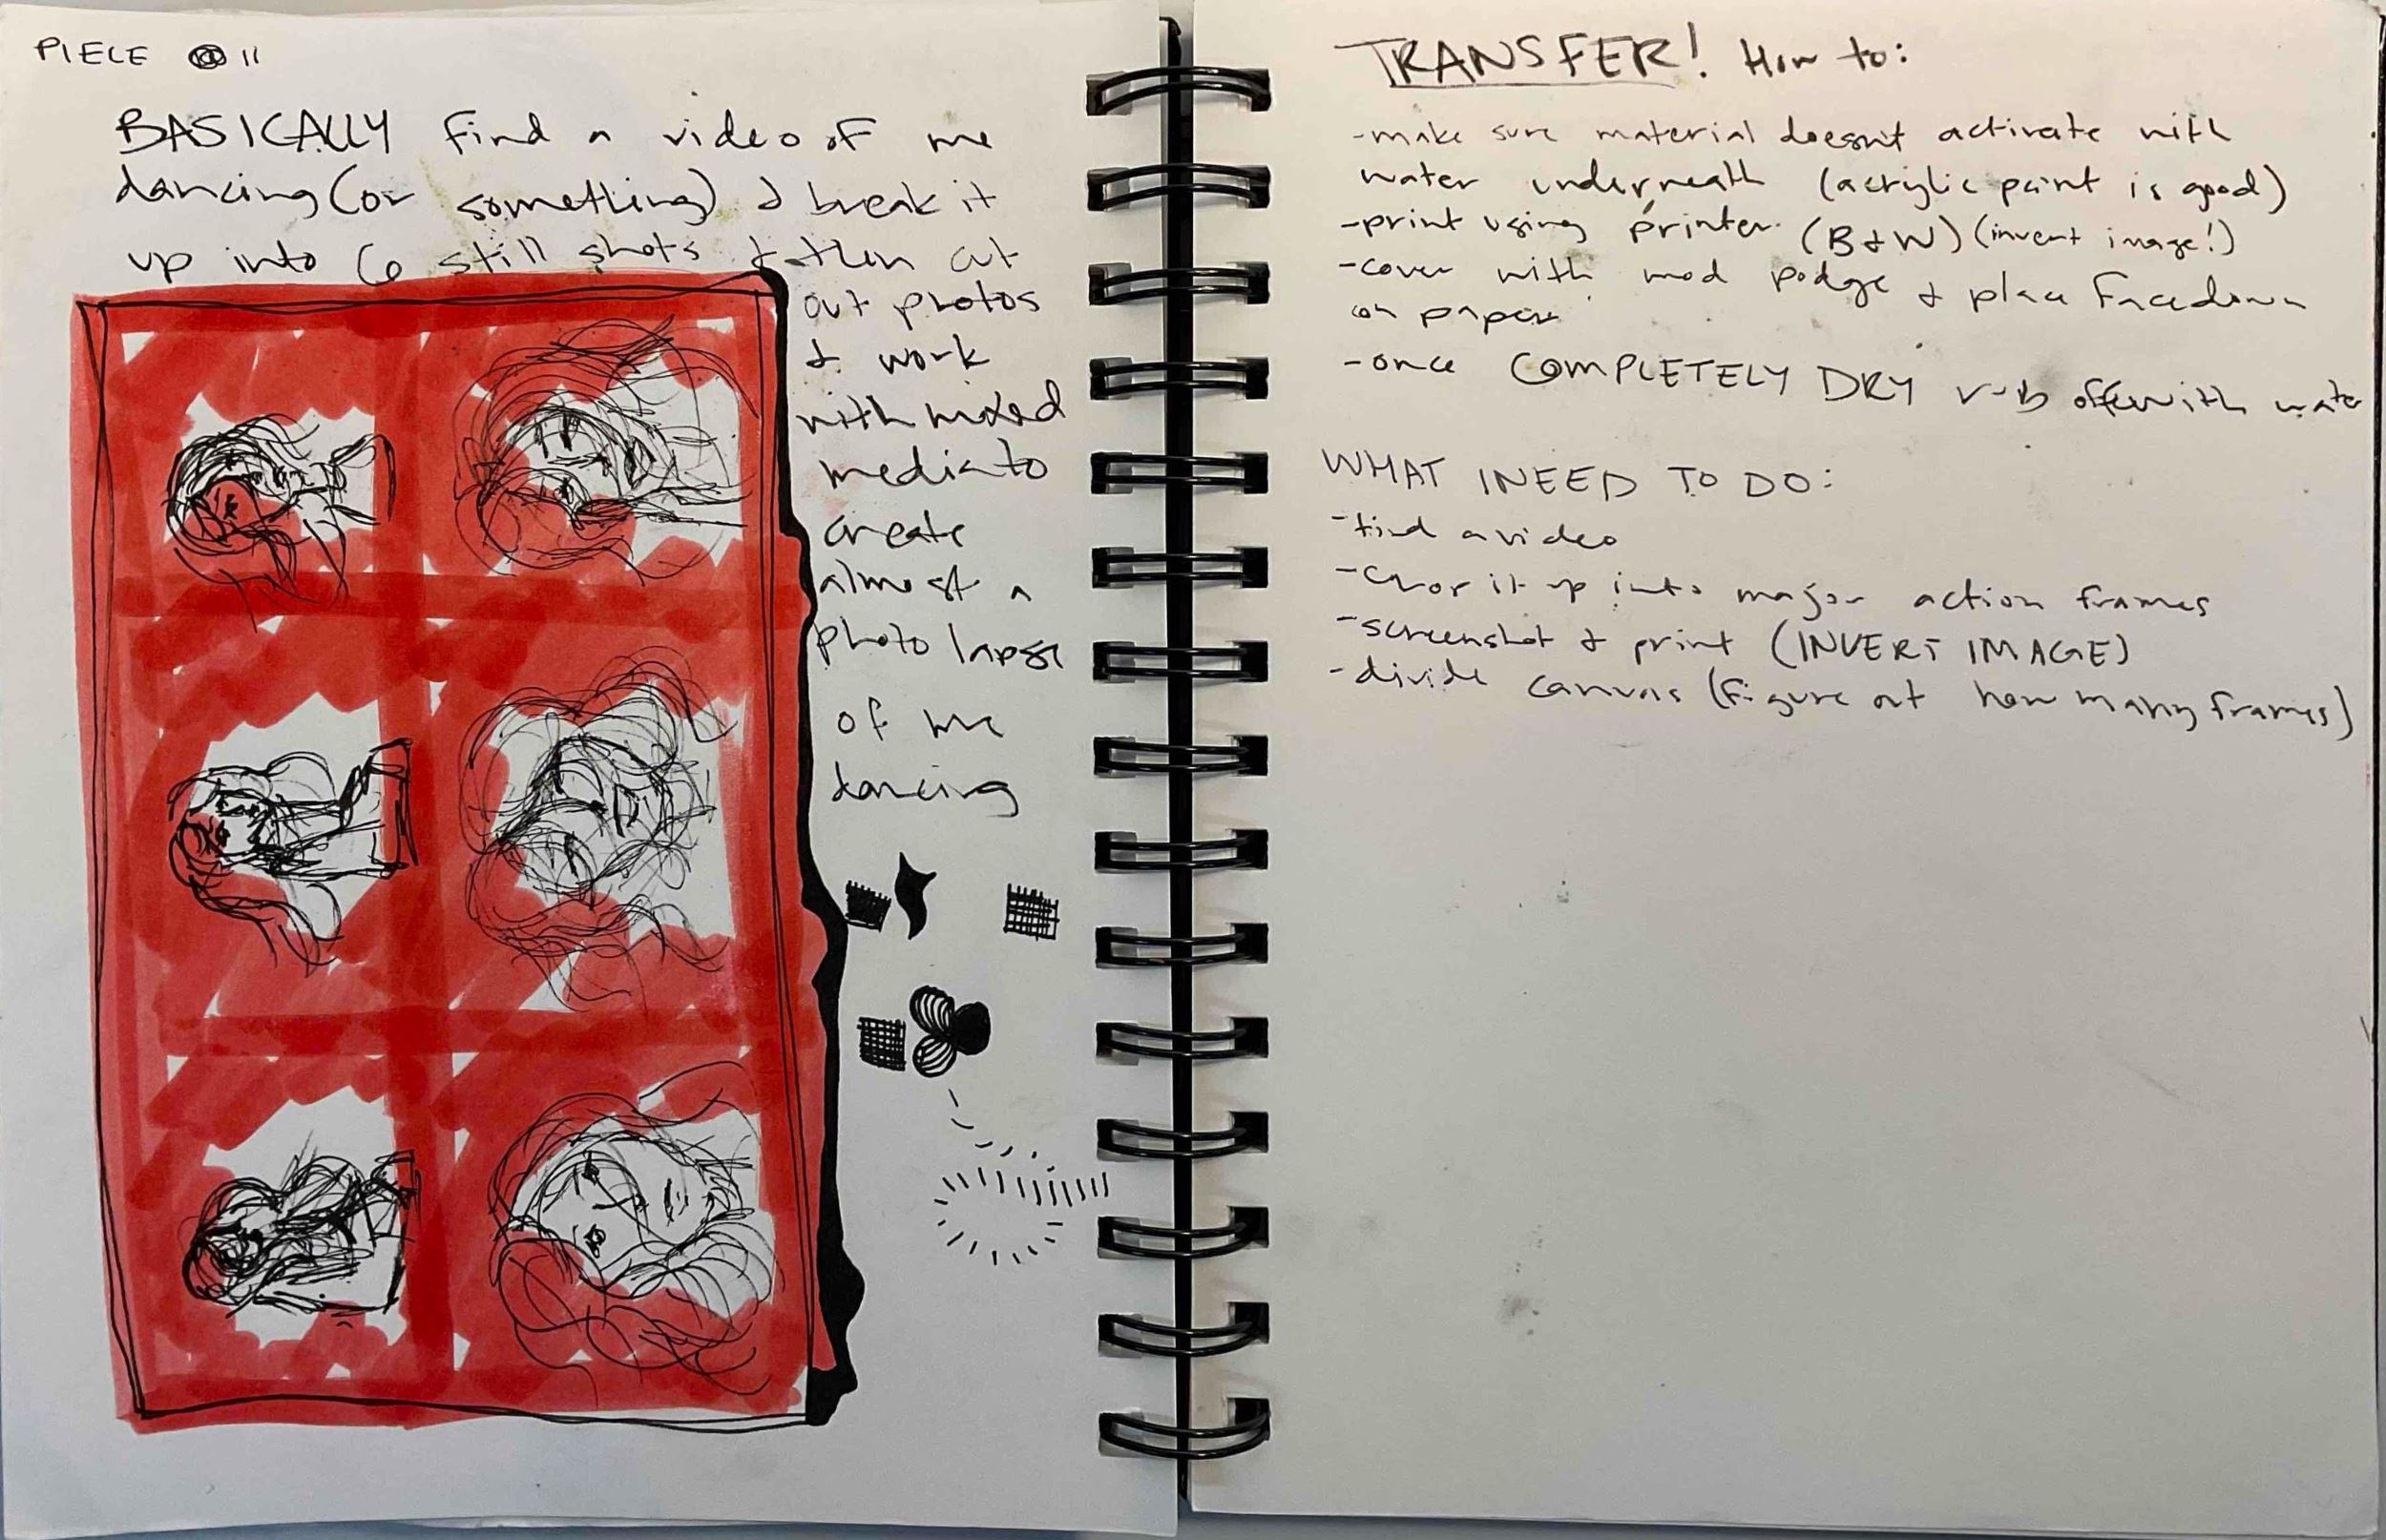 PIECE @ 11
BASICALLY find a video of me
dancing (or something) & break it
up into 6 still shots & then cut
out photos
& work
with mixed
media to
create
almost a
photo lapse
of me
dancing
TRANSFER! How to:
-make sure material doesn't activate with
water underneath (acrylic paint is good)
-print using printer (B&W) (invert image!)
-cover with mod podge & place facedown
on paper
-once COMPLETELY DRY rub off with water
WHAT I NEED TO DO:
-find a video
-chop it up into major action frames
-screenshot & print (INVERT IMAGE)
-divide canvas (figure out how many frames)